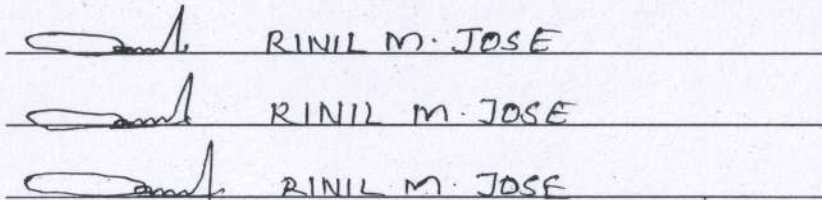 RINIL M. JOSE
RINIL M. JOSE
RINIL M. JOSE